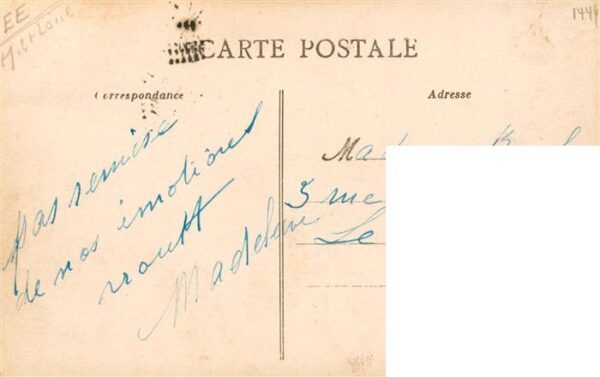 EE
1444
CARTE POSTALE
Correspondance
Adresse
Pas remise
de nos émotions
Madeleine
Mad
5 rue
Le